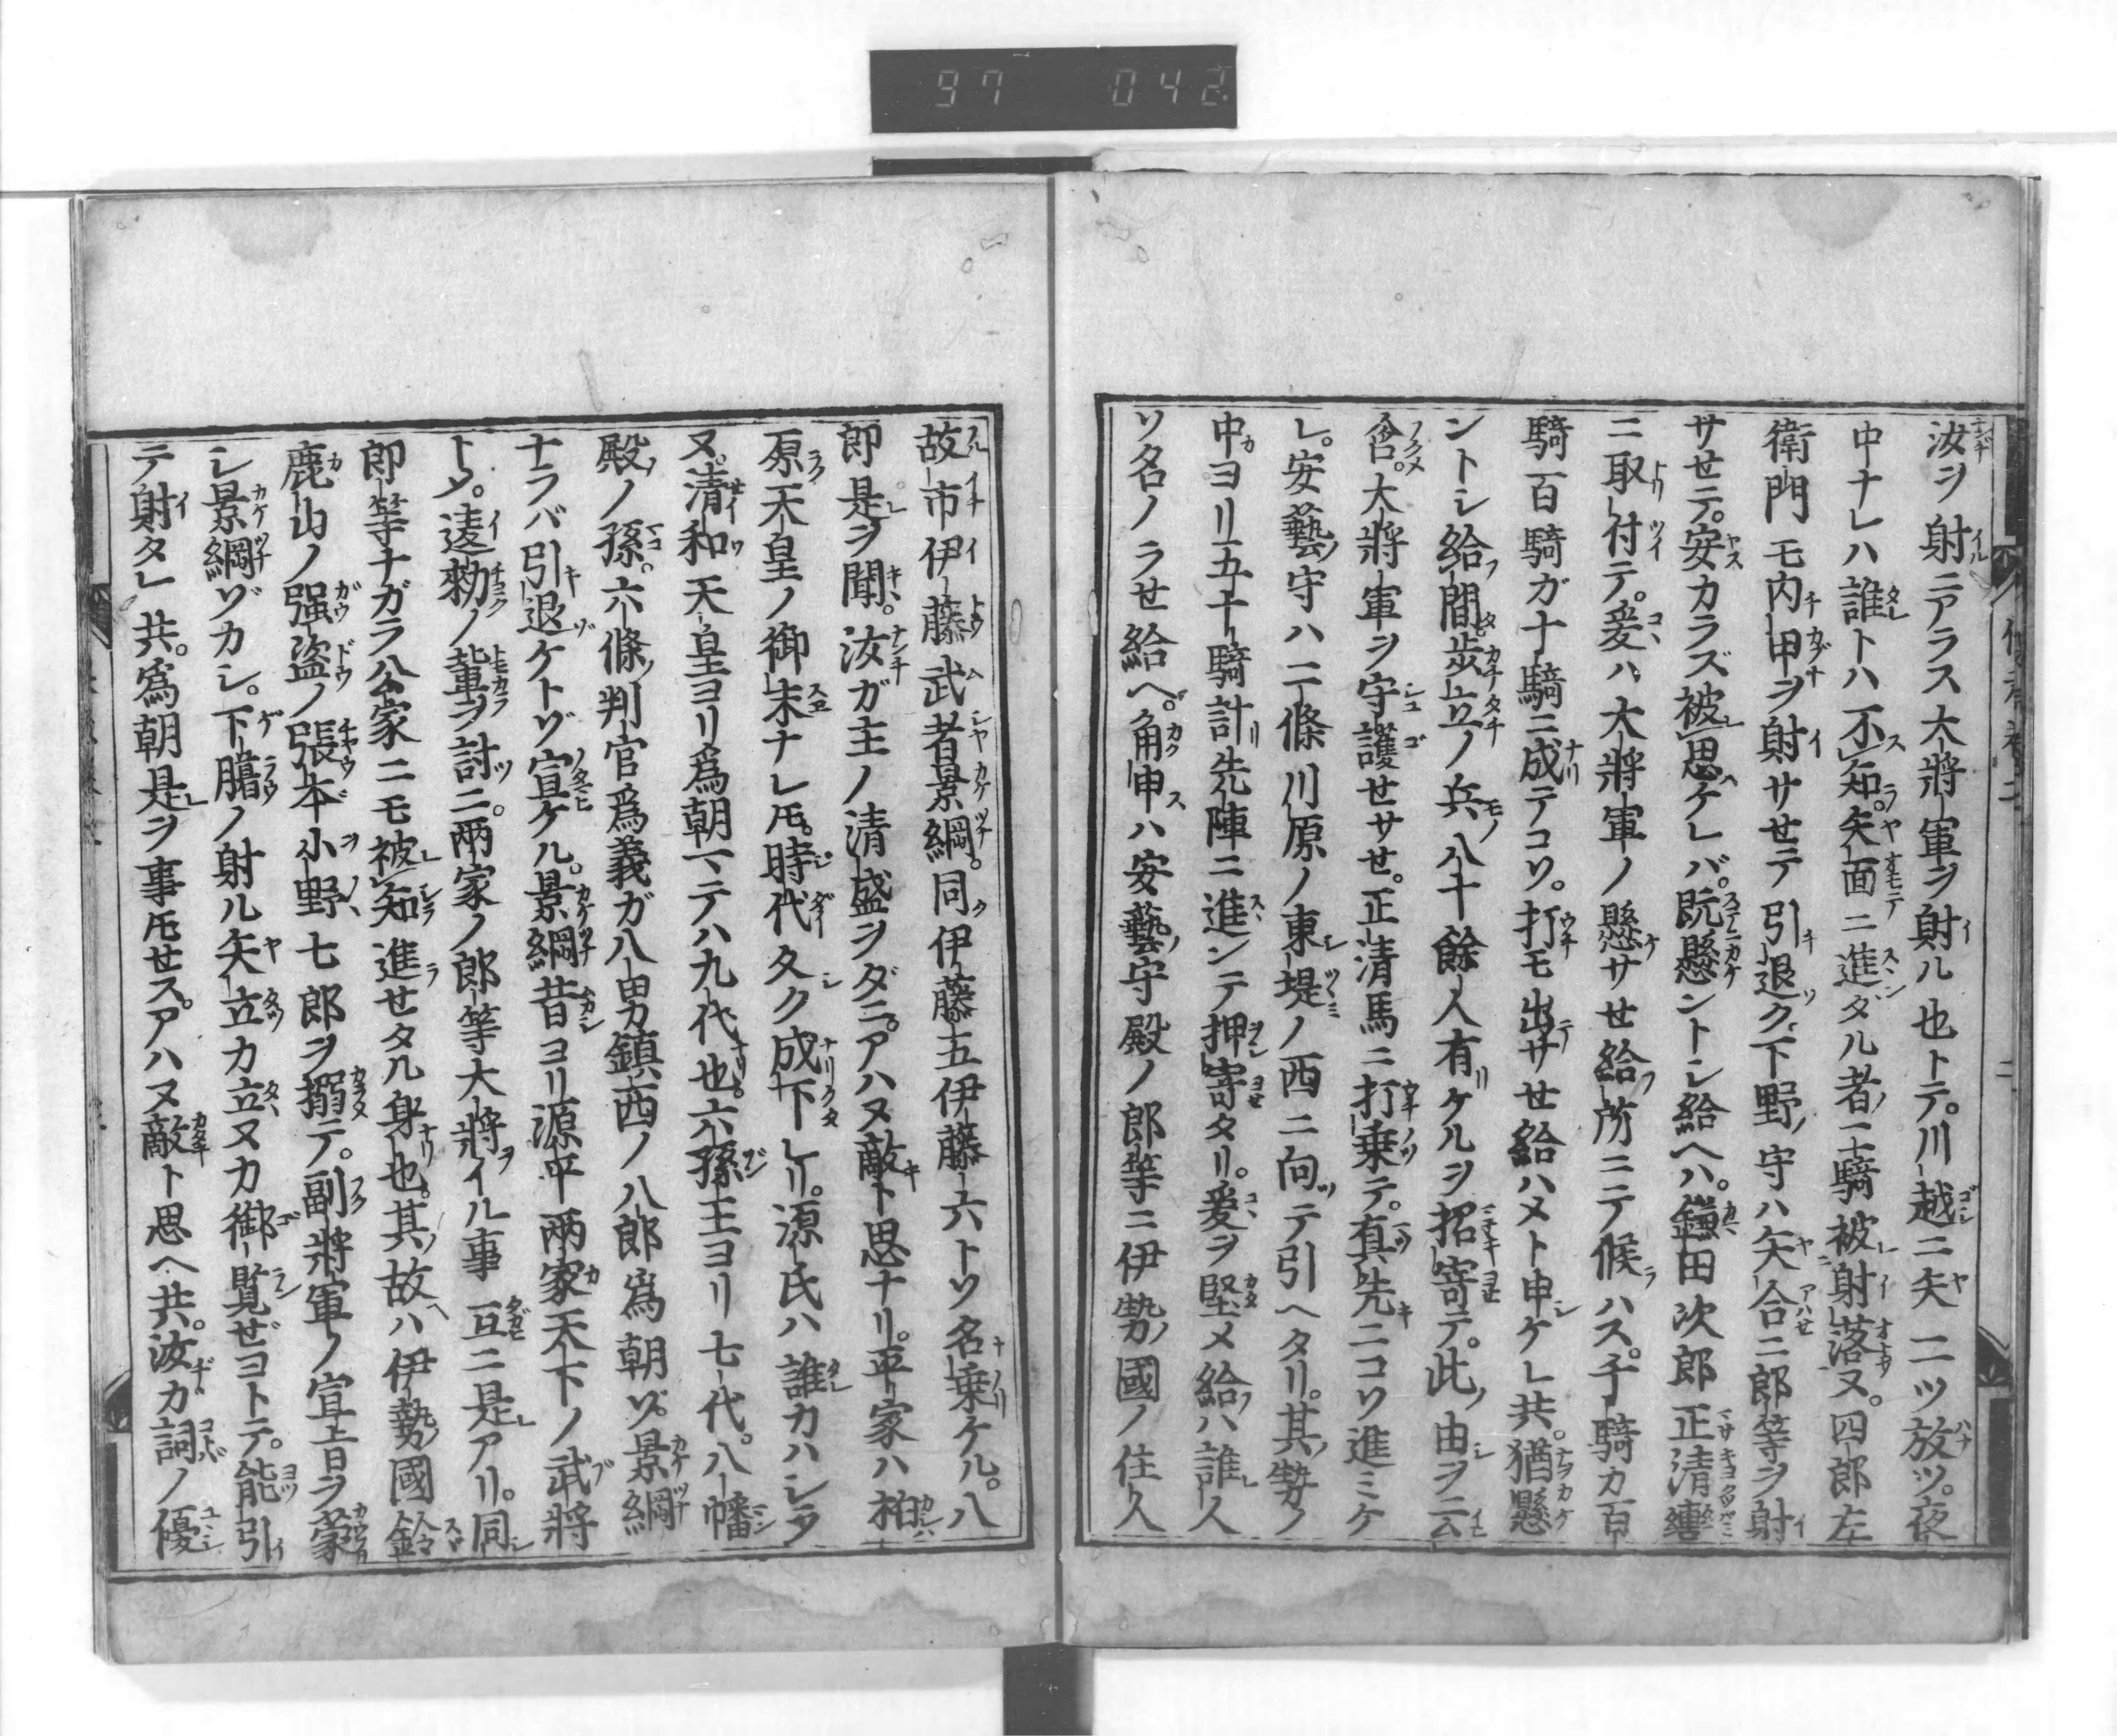 97 042
汝ヲ射ニアラス大將軍ヲ射ル也トテ。川越ニ矢二ツ放ツ。夜
中ナレハ誰トハ不知。矢面ニ進ダル者二騎被射落ヌ。四郎左
衛門モ内甲ヲ射サセテ引退ク。下野守ハ矢合ニ郎等ヲ射
サセテ。安カラズ被思ケレバ。既懸ントシ給ヘハ。鎌田次郎正清轡
ニ取付テ。爰ハ大將軍ノ懸サセ給所ニテ候ハス。千騎カ百
騎百騎ガ十騎ニ成テコソ。打モ出サセ給ハメト申ケレ共。猶懸
ントシ給間。歩立ノ兵八十餘人有ケルヲ招寄テ。此由ヲ云
含。大將軍ヲ守護セサセ。正清馬ニ打乗テ。真先ニコソ進ミケ
レ。安藝守ハ二條川原ノ東堤ノ西ニ向テ引ヘタリ。其勢ノ
中ヨリ五十騎計先陣ニ進ンテ押寄タリ。爰ヲ堅メ給ハ誰人
ソ名ノラせ給ヘ。角申ハ安藝守殿ノ郎等ニ伊勢國ノ住人
故市伊藤武者景綱。同伊藤五伊藤六トソ名乗ケル。八
郎是ヲ聞。汝ガ主ノ清盛ヲダニ。アハヌ敵ト思ナリ。平家ハ柏
原天皇ノ御末ナレ𪜈。時代久ク成下レリ。源氏ハ誰カハシラ
ヌ。清和天皇ヨリ爲朝マテハ九代也。六孫王ヨリ七代。八幡
殿ノ孫。六條判官爲義ガ八男鎮西ノ八郎爲朝ゾ。景綱
ナラバ引退ケトゾ宣ケル。景綱昔ヨリ源平兩家天下ノ武將
トメ。違勅ノ輩ヲ討ニ。兩家ノ郎等大將イル事互ニ是アリ。同
郎等ナガラ公家ニモ被知進せタル身也。其故ハ伊勢國鈴
鹿山ノ强盗ノ張本小野七郎ヲ搦テ。副將軍ノ宣旨ヲ蒙
シ景綱ゾカシ。下臈ノ射ル矢立カ立ヌカ御覧ぜヨトテ。能引
テ射タレ共。爲朝是ヲ事𪜈せス。アハヌ敵ト思ヘ共。汝カ詞ノ優